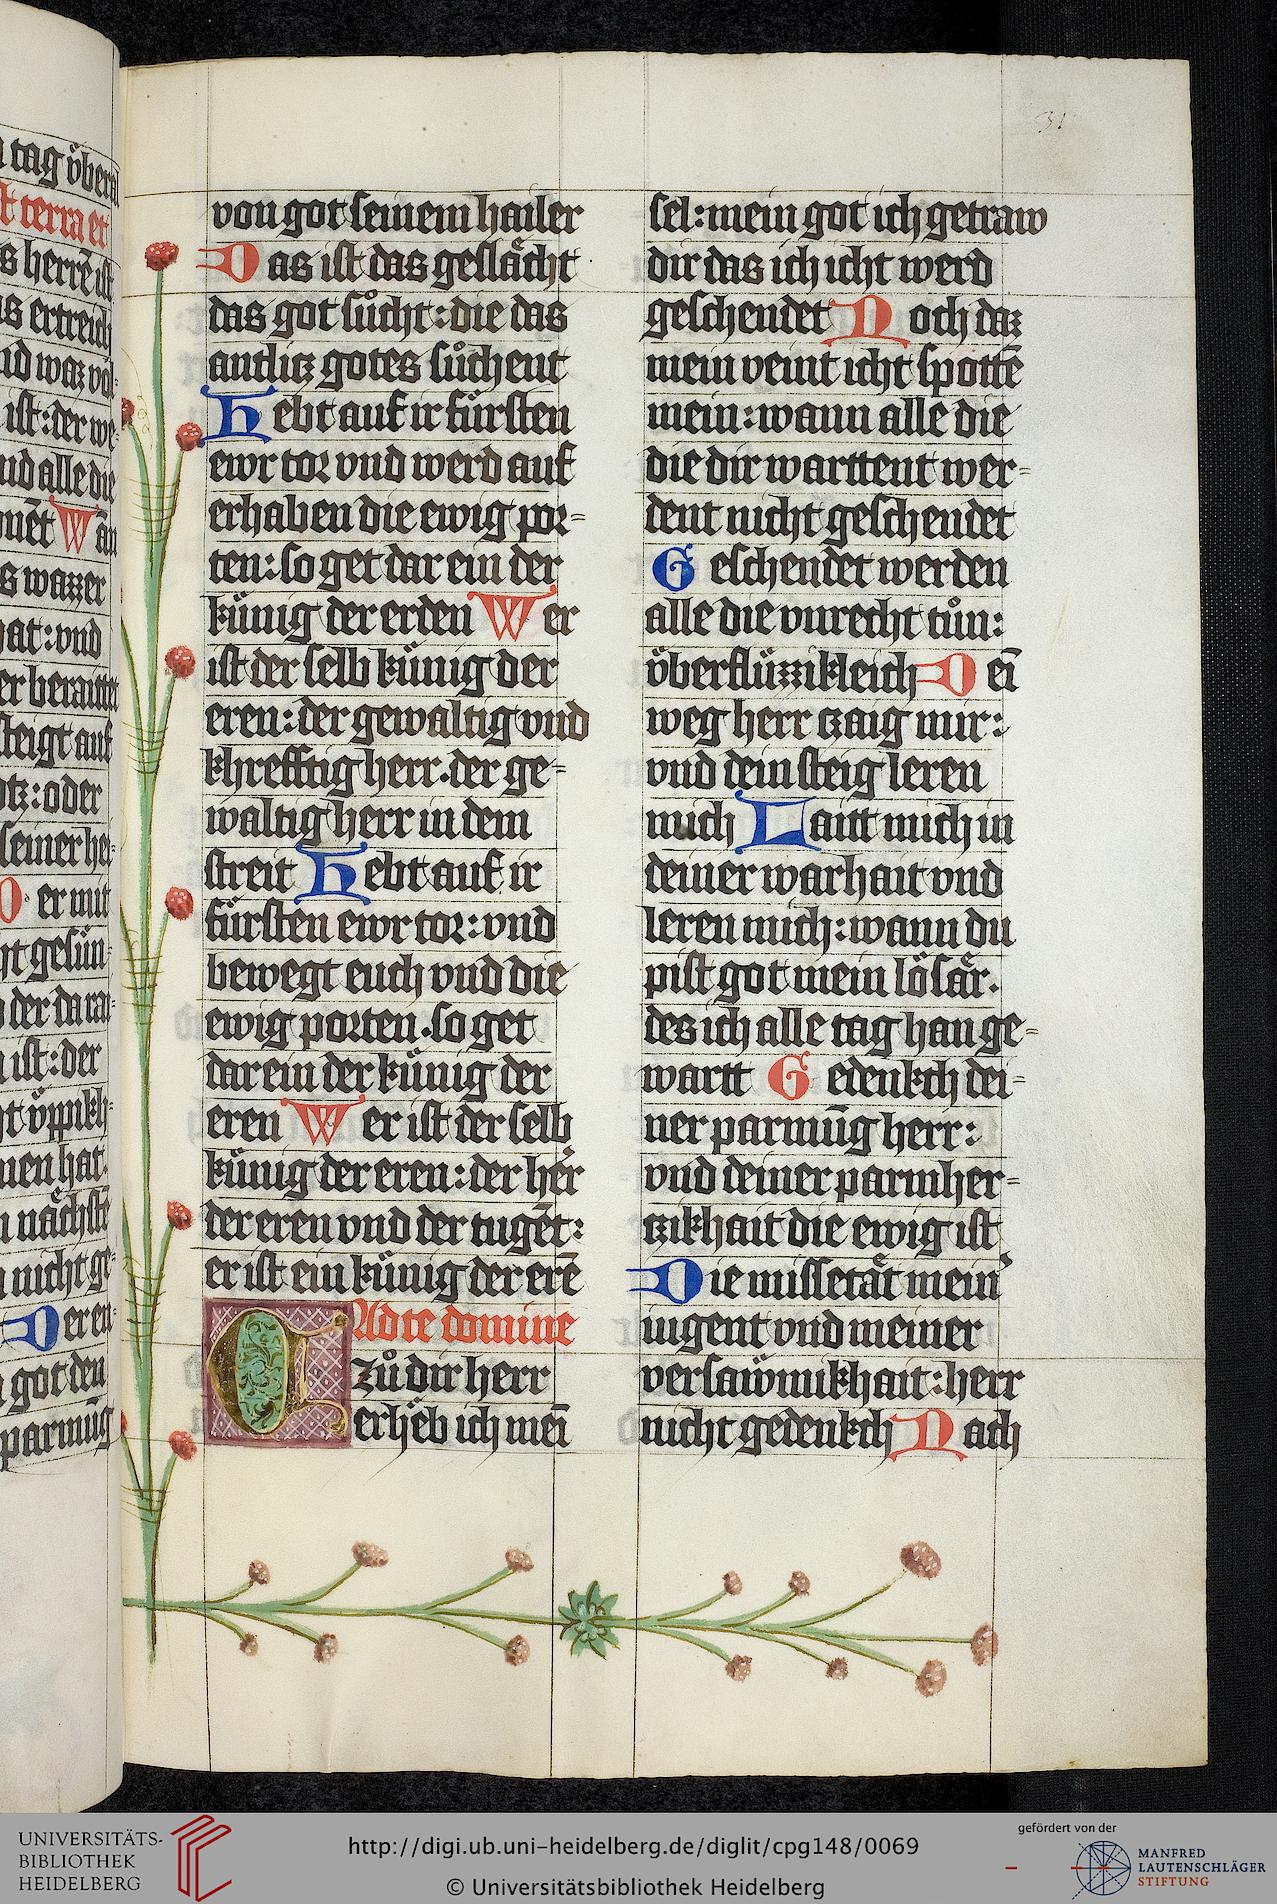 tag vͤber
t terra et
s herrē ist
as ertreich
nd waz vol-
ist: der we
nd alle die
nēt Wān
s wazzer
hat: vnd
er beraittet
steigt auf
otz: oder
seiner hei-
D er mit
gesün-
der da rai-
ist: der
üppikh-
men hat.
nächstē
nicht ge-
Der en-
got den
parmūg
31
von got seinem hailer
Das ist das geslächt
das got sůcht: die das
antlitz gotes sůchent
Hebt auf ir fürsten
ewr tor vnd werd auf
erhaben die ewig por-
ten: so get dar ein der
künig der erden Wer
ist der selb künig der
eren: der gewaltig vnd
khrefftig herr. der ge-
waltig herr in dem
streit Hebt auf ir
fürsten ewr tor: vnd
bewegt euch vnd die
ewig porten. so get
dar ein der künig der
eren Wer ist der selb
künig der eren: der her̄r
der eren vnd der tugēt:
er ist ein künig der erē
Ad te domine
Zů dir herr
erheb ich mei͞
sel: mein got ich getraw
dir das ich icht werd
geschendet Noch daz
mein veint icht spottē
mein: wann alle die
die dir warttent wer-
dent nicht geschendet
Geschendet werden
alle die vnrecht tůn:
vͤberflüzzikleich Dei͞
weg herr tzaig mir:
vnd dein steig leren
mich Laitt mich in
deiner warhait vnd
leren mich: wann du
pist got mein lösär.
des ich alle tag han ge-
wartt Gedenkch dei-
ner parmūg herr:
vnd deiner parmher-
tzikhait die ewig ist
Die missetät mein̕
iugent vnd meiner
versawmikhait: herr
nicht gedenkch Nach
UNIVERSITÄTS-
BIBLIOTHEK
HEIDELBERG
http://digi.ub.uni-heidelberg.de/diglit/cpg148/0069
© Universitätsbibliothek Heidelberg
gefördert von der
MANFRED
LAUTENSCHLÄGER
STIFTUNG